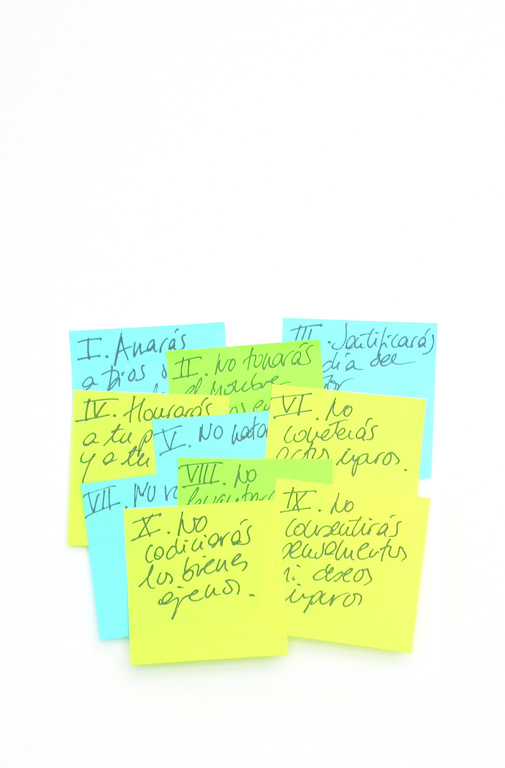 I. Amarás
a Dios
II. No tomarás
el nombre
III. Santificarás
día del
IV. Honrarás
a tu
y a tu
V. No
VI. No
cometerás
actos impuros.
VII. No
VIII. No
IX. No
consentirás
pensamentos
ni deseos
impuros
X. No
codiciarás
los bienes
ajenos.